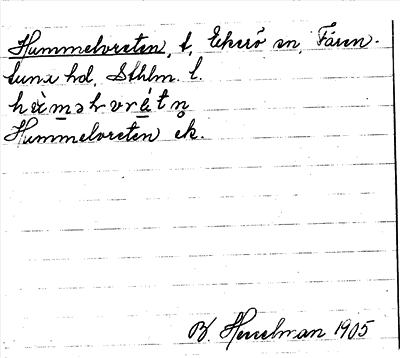 Hummelvreten, t, Ekerö sn, Fären-
tuna hd, Sthlm. l.
hùməlvrétn̥
Hummelvreten ek.
B. Hesselman 1905